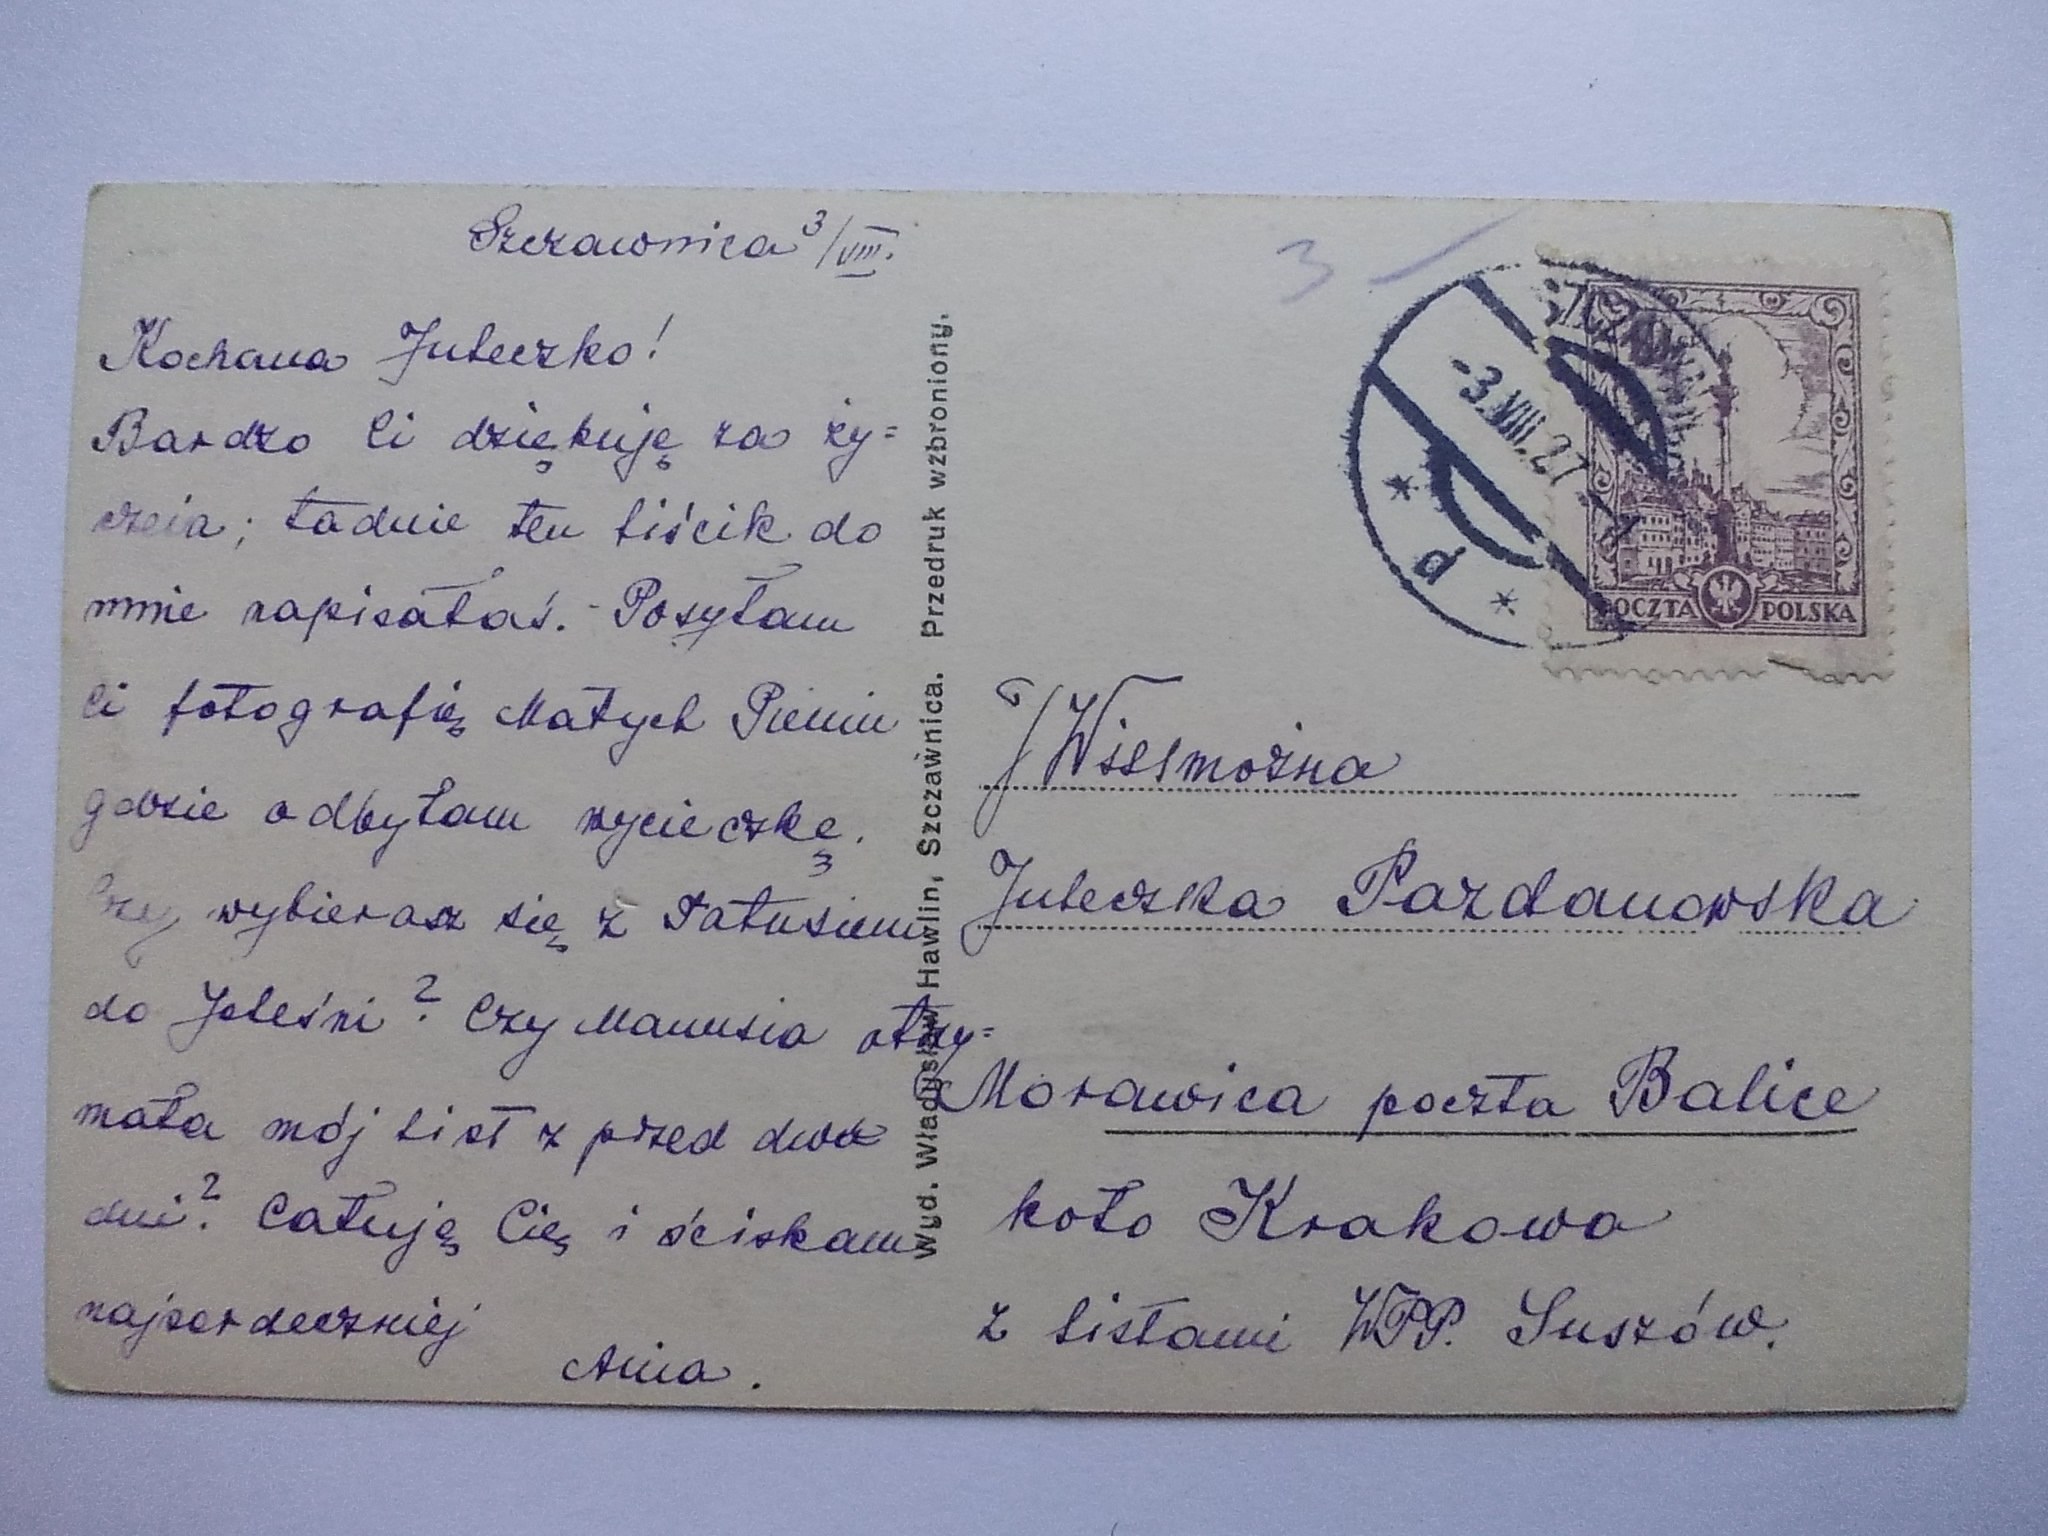 Szczawnica 3/VIII.
Kochana Juleczko!
Bardzo Ci dziękuję za ży=
czeia; ładnie ten liścik do
mnie napisałaś. - Posyłam
Ci fotografię Małych Pienin
gdzie odbyłam wycieczkę.
Czy wybierasz się z Tatusiem
do Jeleśni? Czy Mamusia otrzy=
mała mój list z przed dwu
dni? Całuję Cię i ściskam
najserdeczniej
Ania.
Wyd. Władysław Hawlin, Szczawnica. Przedruk wzbroniony.
3
SZCZAWNICA
-3.VIII.27
* d *
POCZTA POLSKA
J/Wielmożna
Juleczka Pazdanowska
Morawica poczta Balice
koło Krakowa
z listami WPP. Suszów.